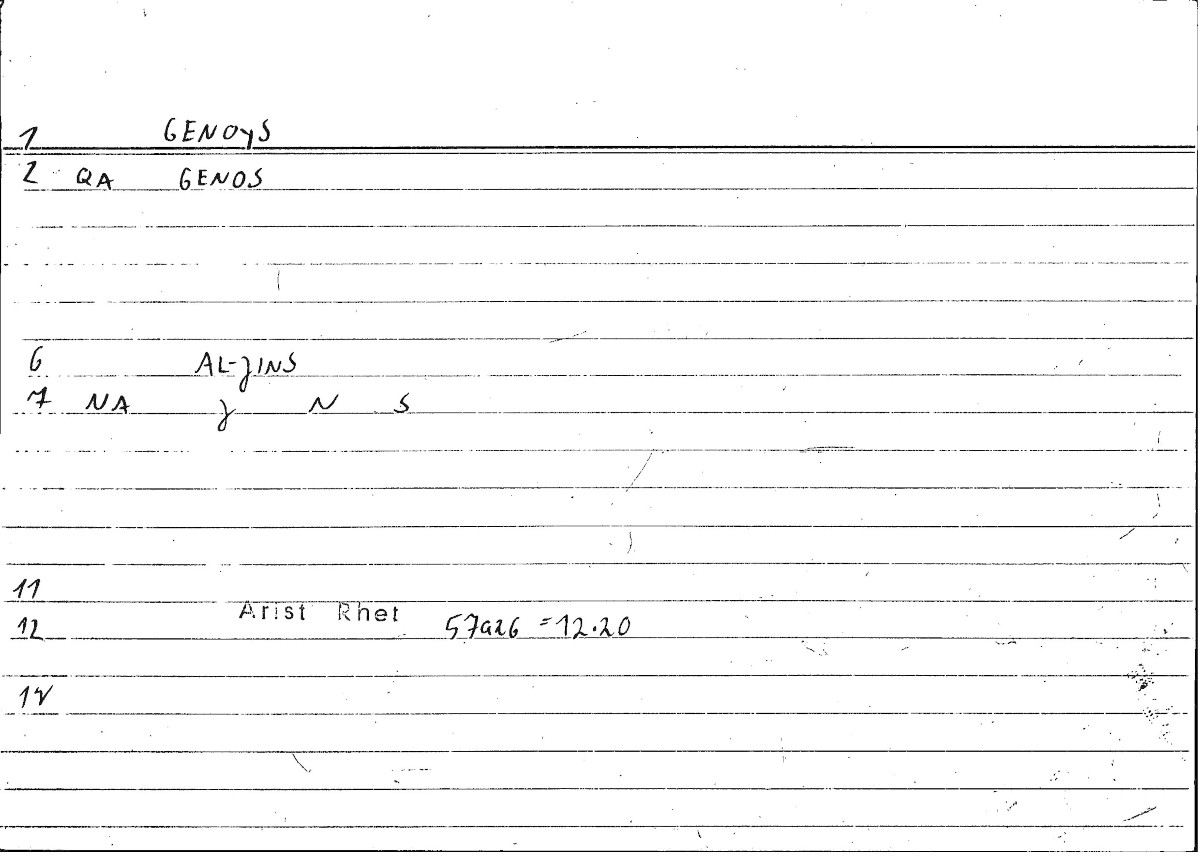 1 GENOyS
2 QA GENOS
6 AL-JINS
7 NA J N S
11
Arist Rhet
12 57a26 =12.20
14